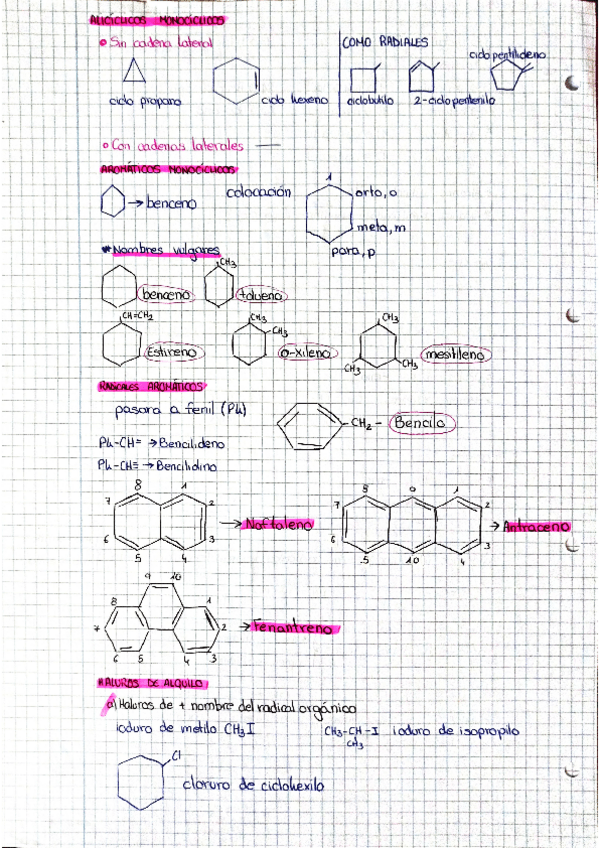 ALICÍCLICOS MONOCÍCLICOS
• Sin cadena lateral
COMO RADIALES
ciclopentilideno
ciclo propano
ciclo hexeno
ciclobutilo
2-ciclopentenilo
• Con cadenas laterales —
AROMÁTICOS MONOCÍCLICOS
→ benceno
colocación
1
orto, o
meta, m
para, p
* Nombres vulgares
benceno
CH3
tolueno
CH=CH2
Estireno
CH3
CH3
o-xileno
CH3
CH3
CH3
mesitileno
RADICALES AROMÁTICOS
pasara a fenil (Ph)
-CH2- Bencilo
Ph-CH= → Bencilideno
Ph-CH≡ → Bencilidino
8 1
7 2
6 3
5 4
→ Naftaleno
8 9 1
7 2
6 3
5 10 4
→ Antraceno
9 10
8 1
7 2
6 5 4 3
→ Fenantreno
HALUROS DE ALQUILO
a) Haluros de + nombre del radical orgánico
ioduro de metilo CH3I
CH3-CH-I ioduro de isopropilo
CH3
Cl
cloruro de ciclohexilo